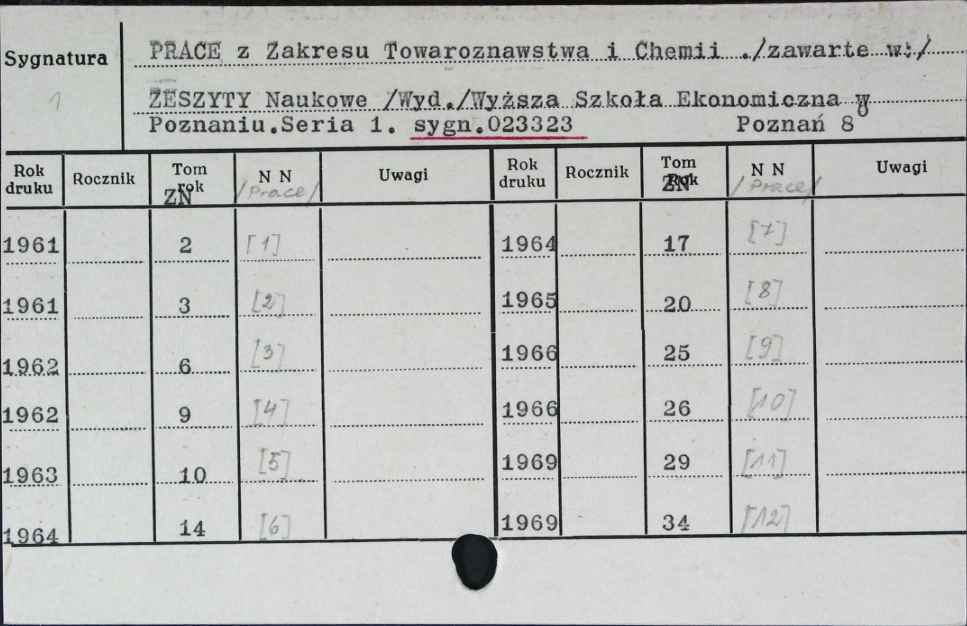 Sygnatura
1
PRACE z Zakresu Towaroznawstwa i Chemii ./zawarte w:./
ZESZYTY Naukowe /Wyd./Wyższa Szkoła Ekonomiczna w
Poznaniu.Seria 1. sygn.023323 Poznań 8
8
Rok druku Rocznik Tom rok ZN N N /Prace/ Uwagi Rok druku Rocznik Tom Rok ZN N N /Prace/ Uwagi
1961 2 [1] 1964 17 [7]
1961 3 [2] 1965 20 [8]
1962 6 [3] 1966 25 [9]
1962 9 [4] 1966 26 [10]
1963 10 [5] 1969 29 [11]
1964 14 [6] 1969 34 [12]